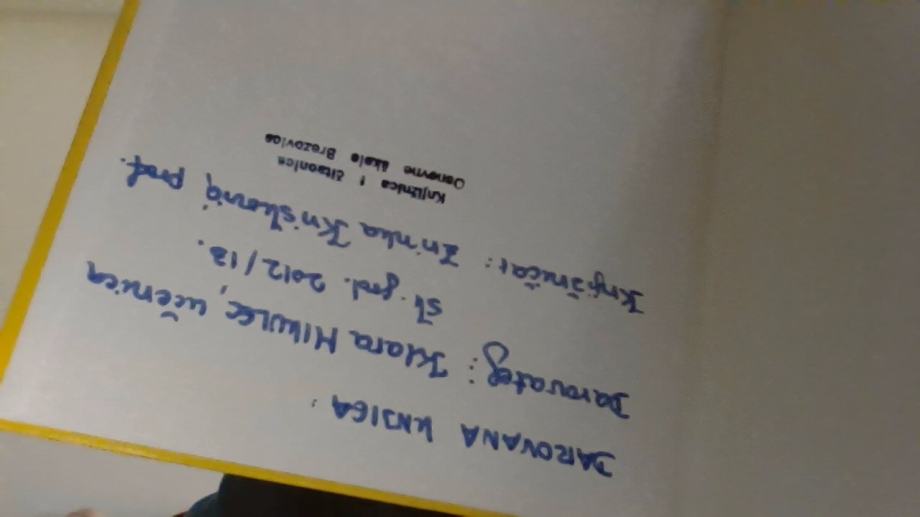 DAROVANA KNJIGA:
Darovatelj: Klara Mikulec, učenica
šk. god. 2012/13.
Knjižničar: Zrinka Krišković, prof.
Knjižnica i čitaonica
Osnovne škole Brezovica